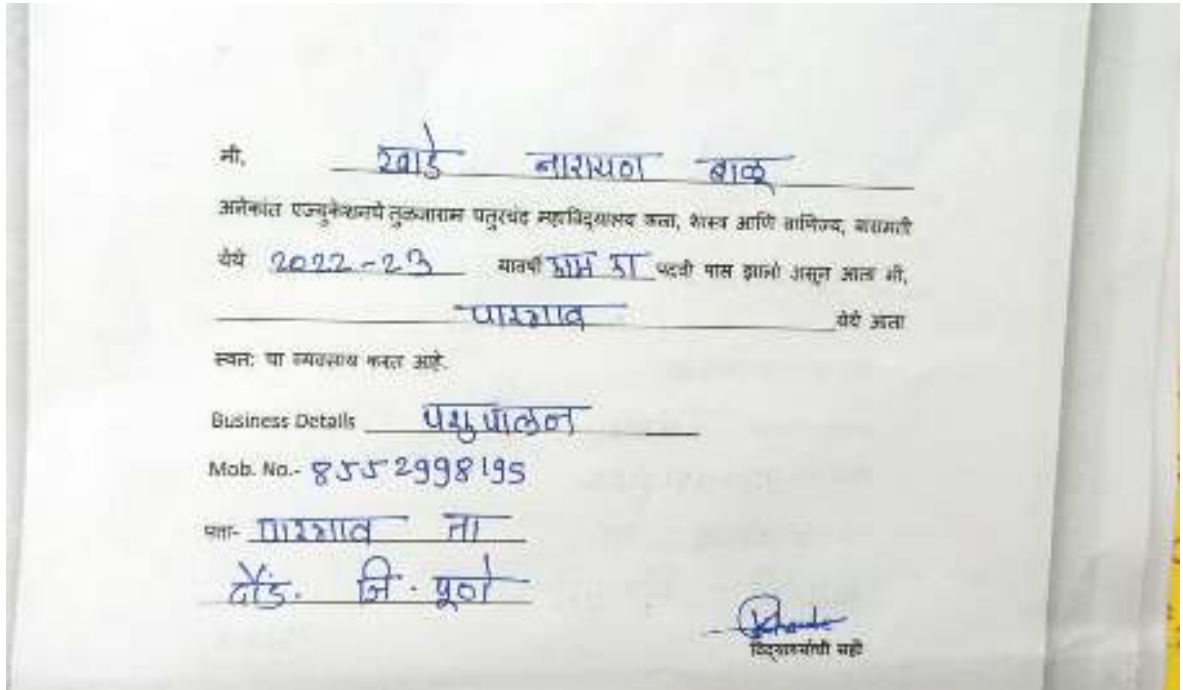 मी, खाडे नारायण बाळू
अनेकांत एज्युकेशनचे तुळजाराम चतुरचंद महाविद्यालय कला, शास्त्र आणि वाणिज्य, बारामती
येथे 2022-23 यावर्षी पदवी पास झालो असून आता मी,
पारगाव येथे आता
स्वतः चा व्यवसाय करत आहे.
Business Details पशुपालन
Mob. No.- 8552998195
पत्ता- पारगाव ता
दौंड. जि. पूणे
विद्यार्थ्याची सही